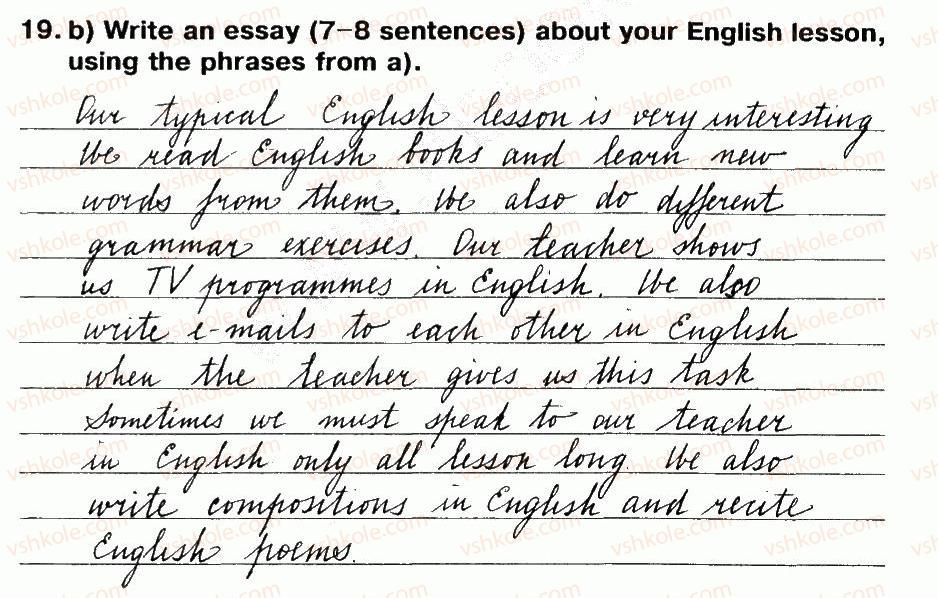 19. b) Write an essay (7–8 sentences) about your English lesson,
using the phrases from a).
Our typical English lesson is very interesting
We read English books and learn new
words from them. We also do different
grammar exercises. Our teacher shows
us TV programmes in English. We also
write e-mails to each other in English
when the teacher gives us this task.
Sometimes we must speak to our teacher
in English only all lesson long. We also
write compositions in English and recite
English poems.
vshkole.com